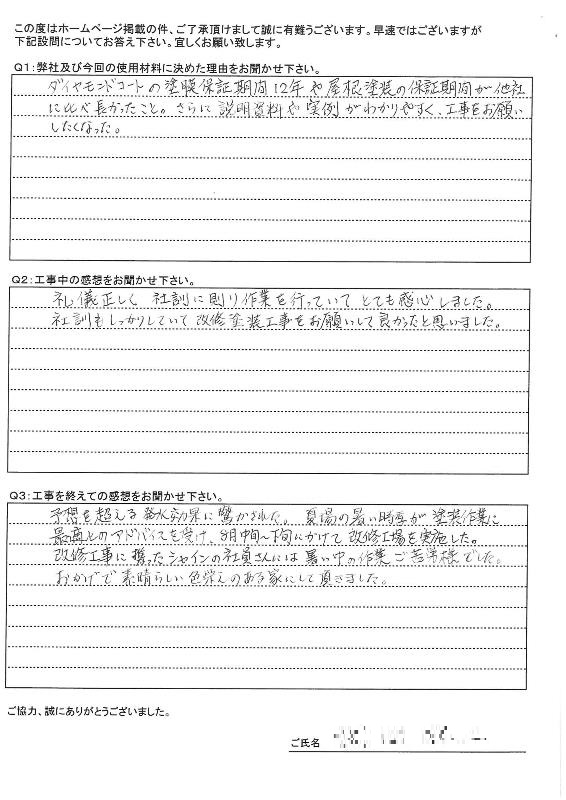 この度はホームページ掲載の件、ご了承頂けまして誠に有難うございます。早速ではございますが
下記設問についてお答え下さい。宜しくお願い致します。
Q1:弊社及び今回の使用材料に決めた理由をお聞かせ下さい。
ダイヤモンドコートの塗膜保証期間12年や屋根塗装の保証期間が他社
に比べ長かったこと。さらに説明資料や実例がわかりやすく、工事をお願い
したくなった。
Q2:工事中の感想をお聞かせ下さい。
礼儀正しく 社訓に則り作業を行っていてとても感心しました。
社訓もしっかりしていて改修塗装工事をお願いして良かったと思いました。
Q3:工事を終えての感想をお聞かせ下さい。
予想を超える発水効果に驚かされた。夏場の暑い時季が塗装作業に
最適とのアドバイスを受け、8月中旬〜下旬にかけて改修工場を実施した。
改修工事に携ったシャインの社員さんには暑い中の作業ご苦労様でした。
おかげで素晴らしい色栄えのある家にして頂きました。
ご協力、誠にありがとうございました。
ご氏名